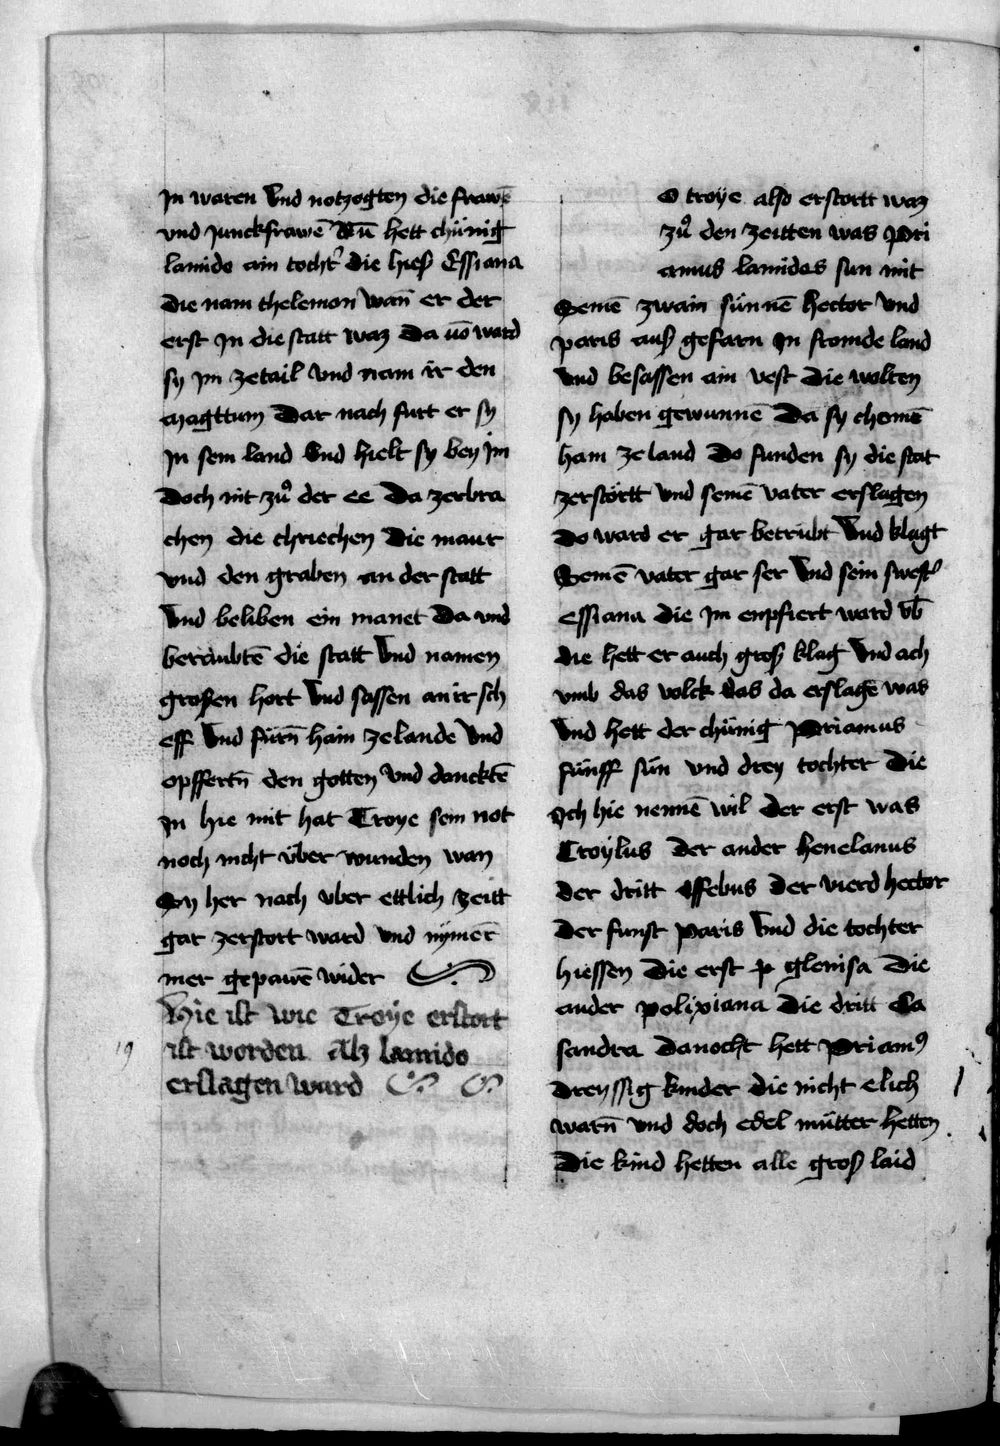 In waren Vnd notzogten die frawē
vnd Junckfrawē Nū hett chünig
lamido ain tocht' die hieß Essiana
die nam thelemon wan̄ er der
erst In die statt waz Da vō ward
sy Im zetail Vnd nam ir den
magttum Dar nach furt er sy
In sein land Vnd hielt sy bey Im
Doch nit zů der ee Da zerbra
chen die chriechen Die maur
vnd den graben an der statt
Vnd beliben ein manet Da vnd
beraubtē die statt Vnd namen
grossen hort Vnd sassen an ir sch
eff Vnd fürn̄ haim zelande Vnd
opffertn̄ den gotten Vnd dancktē
In hie mit hat Troye sein not
noch nicht über wunden wan
Sy her nach vber ettlich zeitt
gar zerstort ward vnd nymer
mer gepawē wider
Hie ist wie Troye erstort
ist worden Alz lamido
erslagen ward
19
o troye also erstortt waz
zů den zeitten was Pri
amus lamidos sun mit
Seinē zwain sünnē hector Vnd
paris auß gefarn In fromde land
Vnd besassen ain vest die wolten
sy haben gewunnē Da sy chomē
ham ze land Do funden sy die stat
zerstörtt Vnd seinē vater erslagen
Do ward er gar betrübt Vnd klagt
Seinē vater gar ser Vnd sein swest'
essiana die Im enpfiert ward Vb̄
die hett er auch groß klag Vnd ach
vmb das volck das da erslagē was
Vnd hett der chünig Priamus
fünff sün vnd drey tochter Die
Ich hie nennē wil Der erst was
Troylus Der ander henelanus
der dritt effebus der vierd hector
Der funft Paris Vnd die tochter
hiessen Die erst p glenisa Die
ander polixiana Die dritt Ca
sandra Danocht hett Priam9
dreyssig kinder die nicht elich
warn̄ vnd doch edel mütter hetten
Die kind hetten alle groß laid